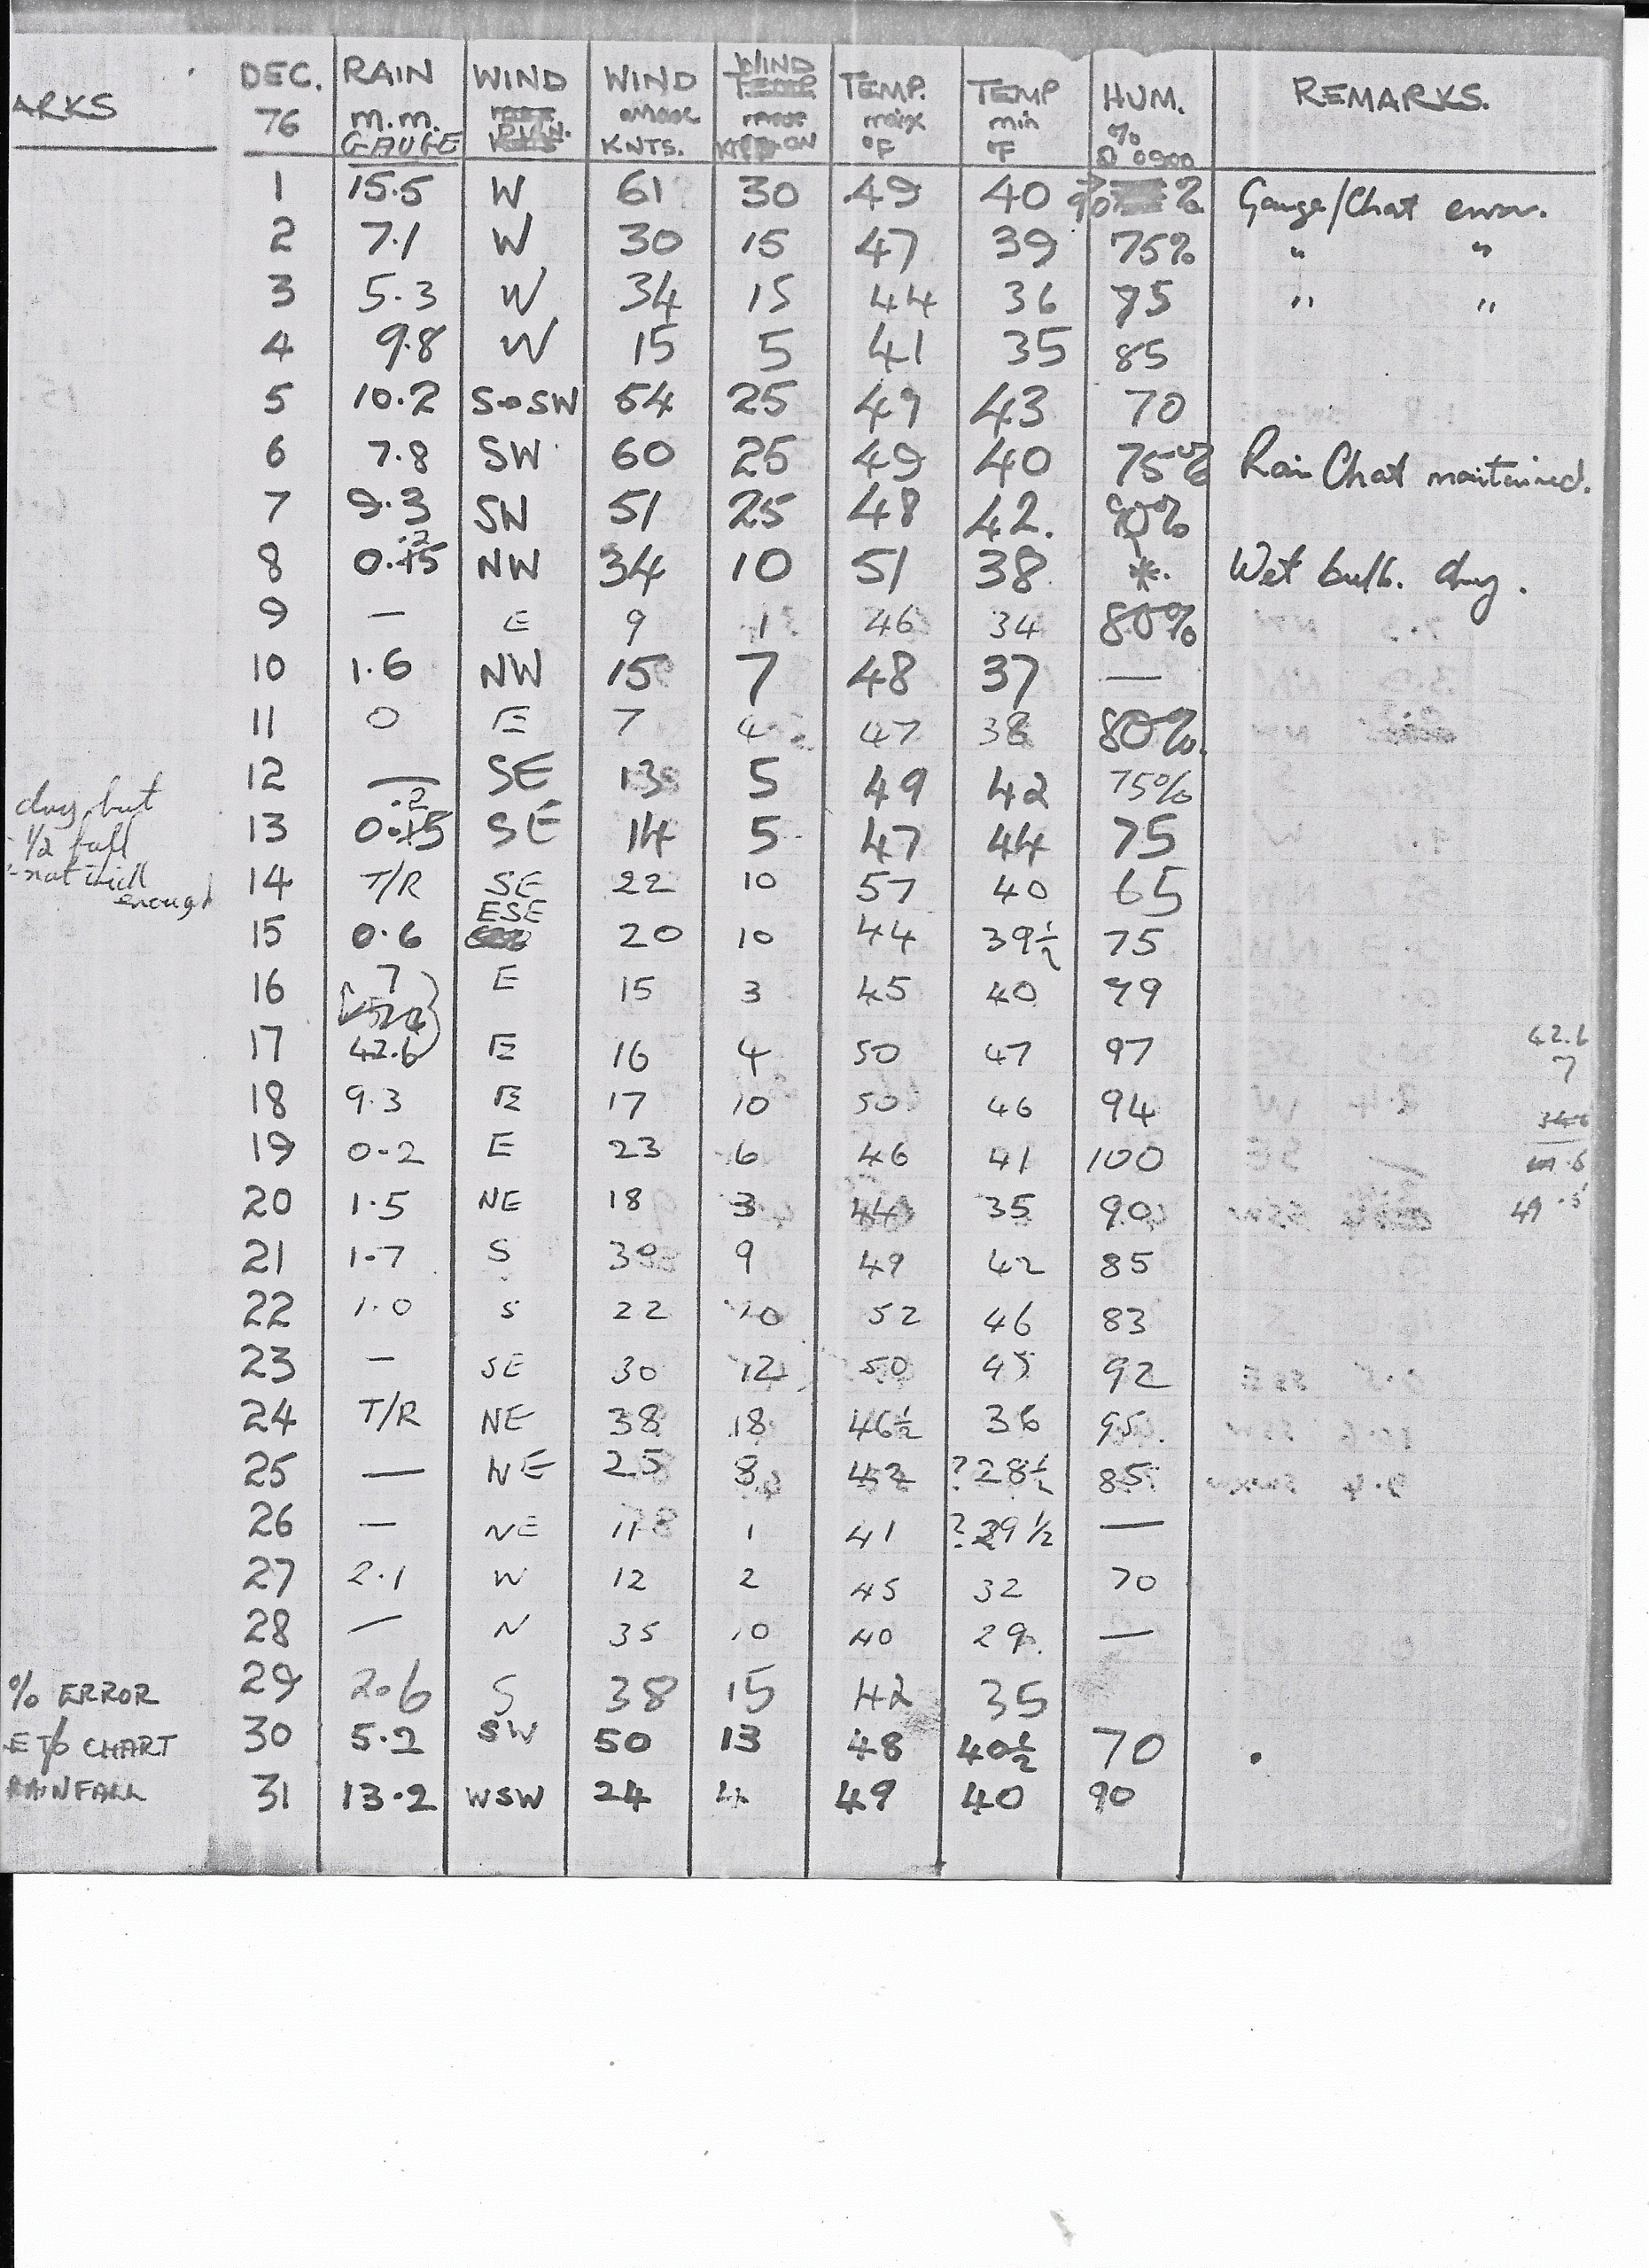 ARKS DEC. 76 RAIN m.m. GAUGE WIND DIRN. WIND KNTS. WIND TEMP. max °F TEMP min °F HUM. % @ 0900 REMARKS.
1 15.5 W 61 30 49 40 90% Gauge/Chart error.
2 7.1 W 30 15 47 39 75% " "
3 5.3 W 34 15 44 36 75 " "
4 9.8 W 15 5 41 35 85
5 10.2 S-SW 54 25 49 43 70
6 7.8 SW 60 25 49 40 75% Rain Chart maintained.
7 9.3 SW 51 25 48 42. 90%
8 0.2 NW 34 10 51 38 *. Wet bulb. dry.
9 — E 9 1 46 34 80%
10 1.6 NW 15 7 48 37 —
11 0 E 7 4 47 38 80%.
12 — SE 13 5 49 42 75%
dry but
13 0.2 SE 14 5 47 44 75
1/2 full
14 T/R SE 22 10 57 40 65
not thick enough
15 0.6 ESE 20 10 44 39½ 75
16 7 E 15 3 45 40 79
17 42.6 E 16 4 50 47 97 42.6
7
18 9.3 E 17 10 50 46 94
19 0.2 E 23 6 46 41 100
20 1.5 NE 18 3 44 35 90 49.5
21 1.7 S 30 9 49 42 85
22 1.0 S 22 10 52 46 83
23 — SE 30 12 50 45 92
24 T/R NE 38 18 46½ 36 95.
25 — NE 25 8 42 ?28½ 85
26 — NE 11 1 41 ?29½ —
27 2.1 W 12 2 45 32 70
28 — N 35 10 40 29. —
% ERROR 29 2.6 S 38 15 42 35
CHART 30 5.2 SW 50 13 48 40½ 70 .
RAINFALL 31 13.2 WSW 24 4 49 40 90